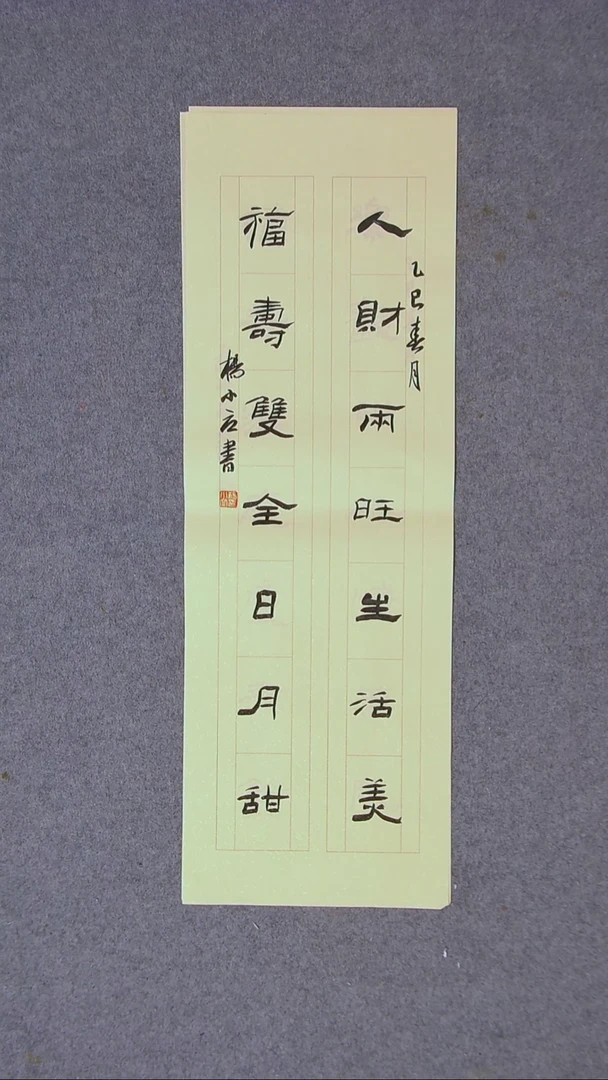 人財兩旺生活美
乙巳春月
福壽雙全日月甜
楊小應書